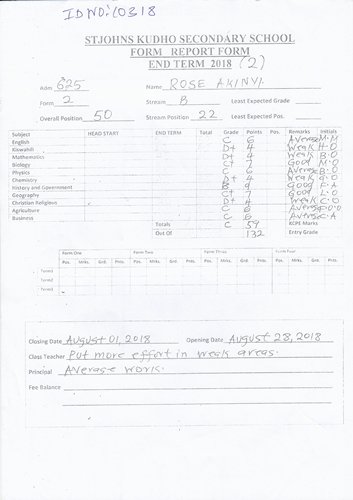 IDNO:10318
STJOHNS KUDHO SECONDARY SCHOOL
FORM REPORT FORM
END TERM 2018 (2)
Adm 625 Name ROSE AKINYI
Form 2 Stream B Least Expected Grade
Overall Position 50 Stream Position 22 Least Expected Pos.
Subject HEAD START END TERM Total Grade Points Pos. Remarks Initials
English C 6 Average M.M
Kiswahili D+ 4 Weak H.O
Mathematics D+ 4 Weak B.O
Biology C+ 7 Good M.O
Physics C 6 Average B.O
Chemistry D+ 4 Weak G.O
History and Government B 9 Good F.A
Geography C+ 7 Good L.O
Christian Religious D+ 4 Weak C.O
Agriculture C 6 Average
Business C 6 Average C.A
Totals C 59 KCPE Marks
Out Of 132 Entry Grade
Form One Form Two Form Three Form Four
Pos. Mrks. Grd. Pnts. Pos. Mrks. Grd. Pnts. Pos. Mrks. Grd. Pnts. Pos. Mrks. Grd. Pnts.
Term1
Term2
Term3
Closing Date August 01, 2018 Opening Date August 28, 2018
Class Teacher Put more effort in weak areas.
Principal Average work.
Fee Balance